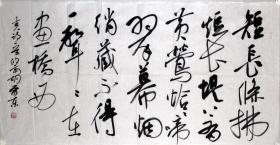 短長條拂
短長堤上有
黃鶯恰恰啼
翠幕烟
綃藏不得
一聲聲在
畫橋西